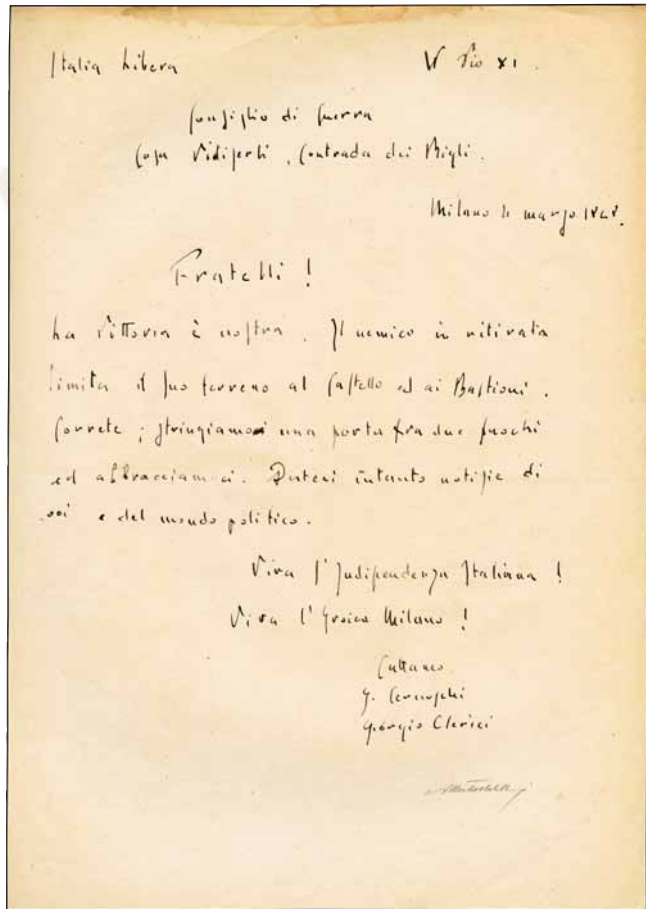 Italia Libera W Pio XI.
Consiglio di Guerra
Casa Vidiserti, Contrada dei Bigli.
Milano 4 marzo 1848.
Fratelli!
La Vittoria è nostra. Il nemico in ritirata
limita il suo terreno al Castello ed ai Bastioni.
Correte; stringiamoci una porta fra due fuochi
ed abbracciamoci. Dateci intanto notizie di
voi e del mondo politico.
Viva l'Indipendenza Italiana!
Viva l'Eroica Milano!
Cattaneo
G. Cernuschi
Giorgio Clerici